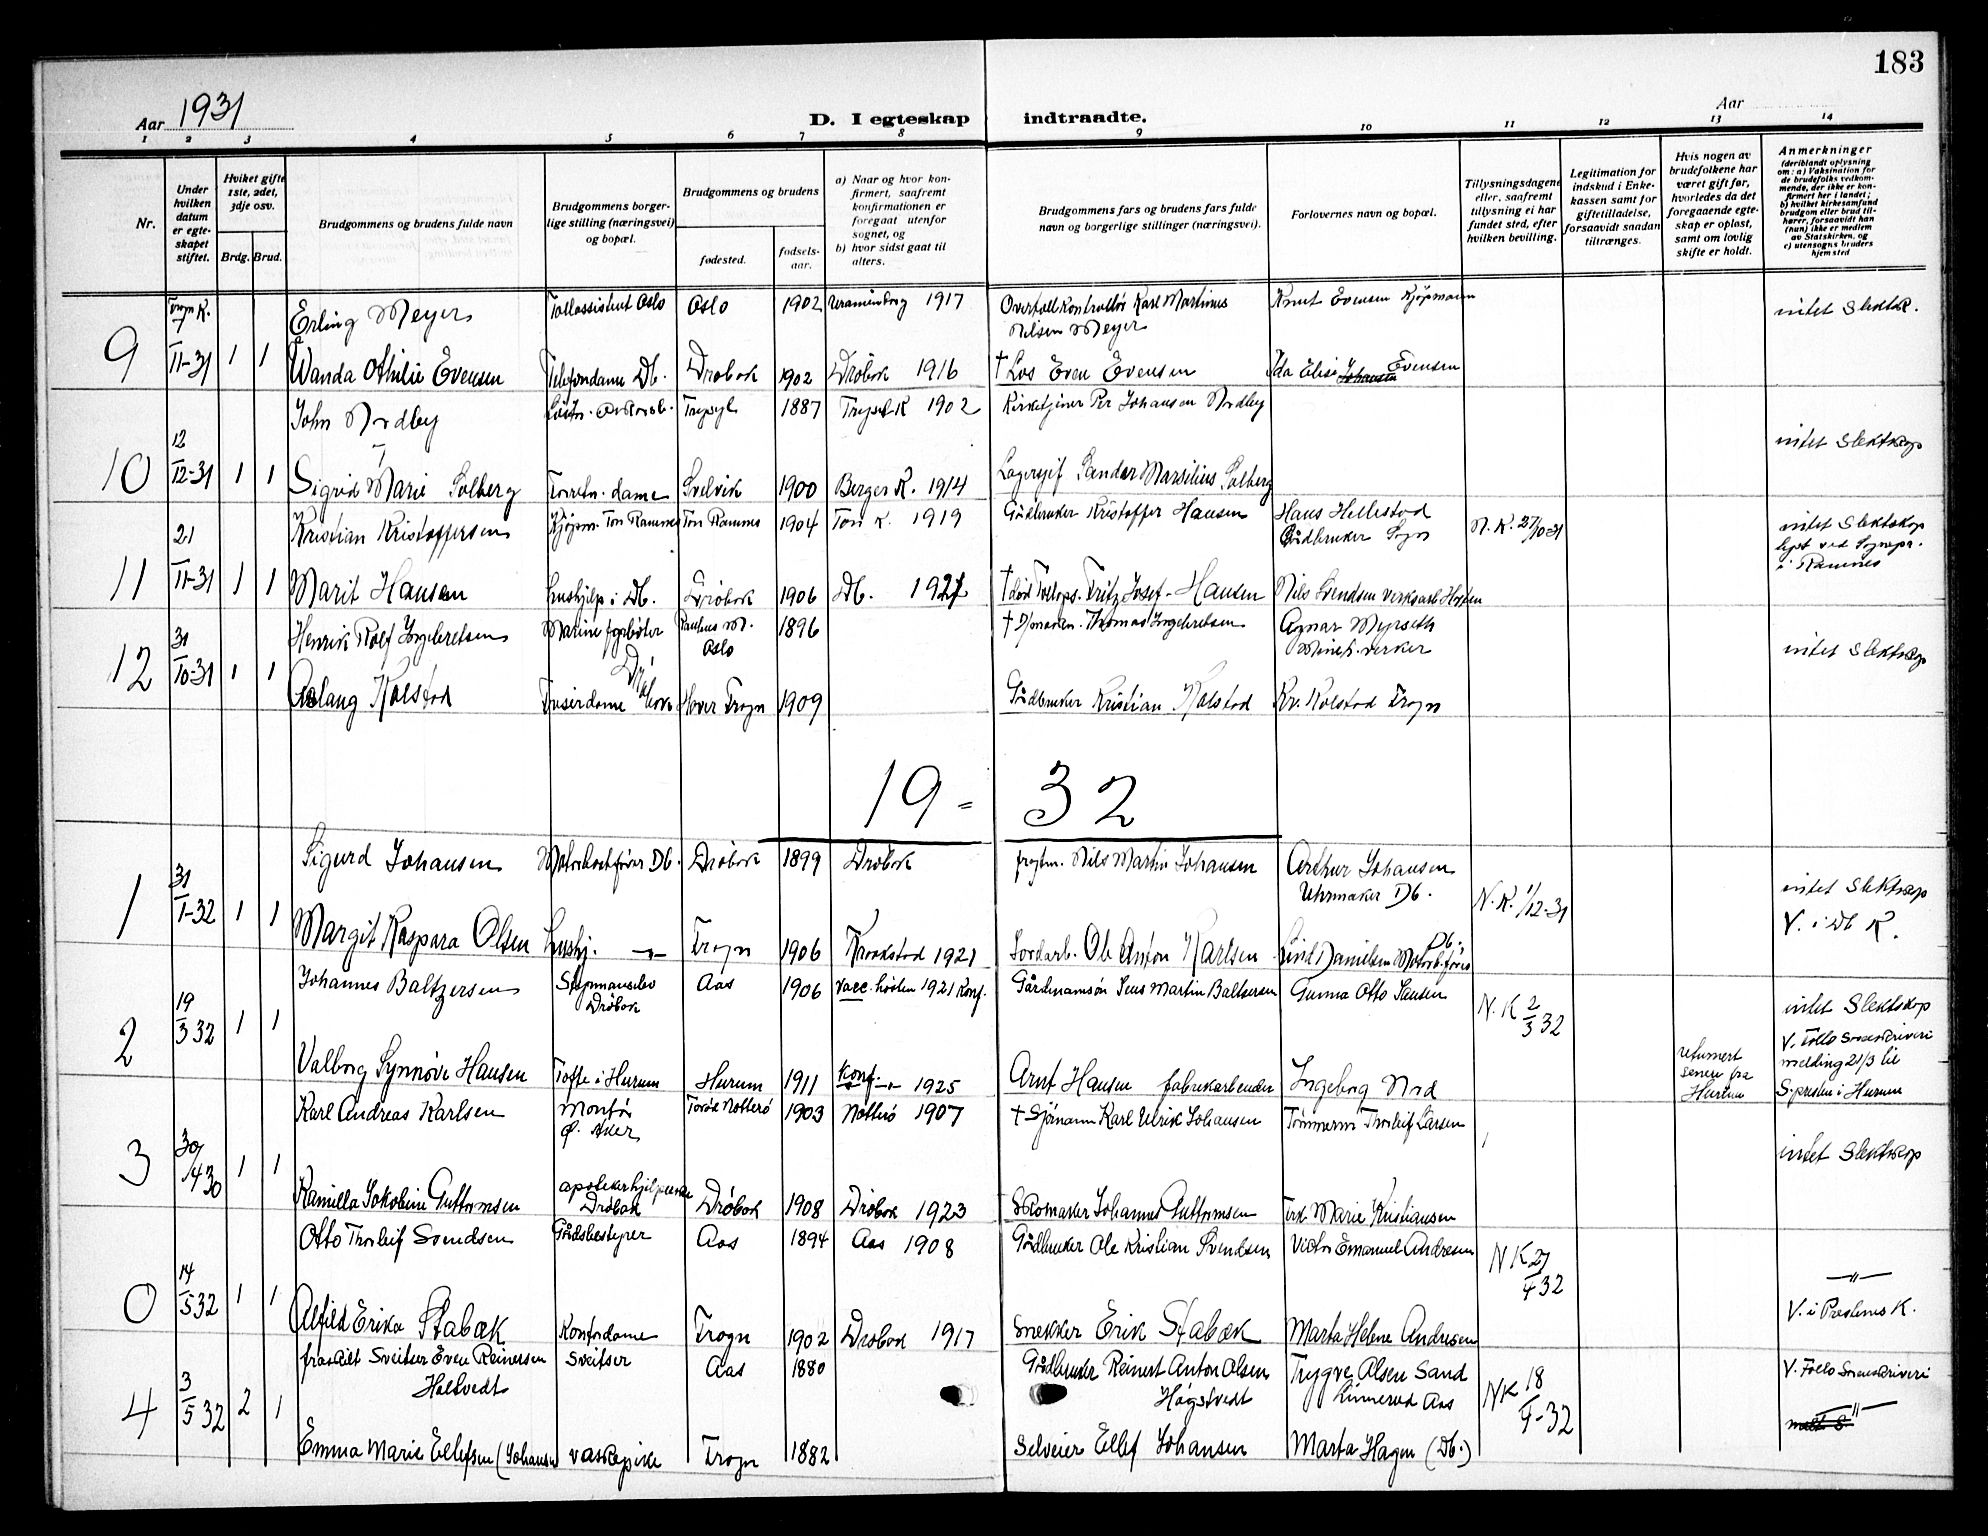 183
Aar 1931
D. I egteskap indtraadte.
Aar
1 2 3 4 5 6 7 8 9 10 11 12 13 14
Nr.
Under hvilken datum er egteskapet stiftet.
Hvilket gifte 1ste, 2det, 3dje osv.
Brdg. Brud.
Brudgommens og brudens fulde navn
Brudgommens borgerlige stilling (næringsvei) og bopæl.
Brudgommens og brudens
fødested.
fødselsaar.
a) Naar og hvor konfirmert, saafremt konfirmationen er foregaat utenfor sognet, og
b) hvor sidst gaat til alters.
Brudgommens fars og brudens fars fulde navn og borgerlige stillinger (næringsvei).
Forlovernes navn og bopæl.
Tillysningsdagene eller, saafremt tillysning ei har fundet sted, efter hvilken bevilling.
Legitimation for indskud i Enkekassen samt for giftetilladelse, forsaavidt saadan tiltrænges.
Hvis nogen av brudefolkene har været gift før, hvorledes da det foregaaende egteskap er opløst, samt om lovlig skifte er holdt.
Anmerkninger
(deriblandt oplysning om: a) Vaksination for de brudefolks vedkommende, der ikke er konfirmert her i landet; b) hvilket kirkesamfund brudgom eller brud tilhører, forsaavidt han (hun) ikke er medlem av Statskirken, og c) utensogns bruders hjemsted
Erling Meyer Tollassistent Oslo Oslo 1902 1917 Overtollkontrollør Karl Martinus Knut Evensen Kjøpmann intet Slektsk.
Nilsen Meyer
9 7/11-31 1 1 Wanda Othilie Evensen Telefondame Db. Drøbak 1902 Drøbak 1916 † Los Even Evensen Ida Elise Evensen
John Nordby Trysyl 1887 Trysil K 1902 Kirketjener Per Johansen Nordby
10 12/12-31 1 1 Sigrid Marie Solberg Forretn. dame Svelvik 1900 Berger K. 1914 Lagersjef Sander Marsilius Solberg intet Slektskap
Kristian Kristoffersen Kjøpm. Ton Ramnes Ton Ramnes 1904 Ton K. 1919 Gårdbruker Kristoffer Hansen Hans Hellestad N.K. 27/10-31 intet Slektskap
Gårdbruker lyst ved Sognepr.
i Ramnes
11 21/11-31 1 1 Marit Hansen hushjelp i Db. Drøbak 1906 Db. 1921 Fritz Josef Hansen Nils Svendsen
Henrik Rolf Ingebretsen Paulus M. 1896 Thomas Ingebretsen Agnar Myrseth
Oslo
12 31/10-31 1 1 Aslaug Kolstad Friserdame Drøbak Hover Frogn 1909 Gårdbruker Kristian Kolstad Kr. Kolstad Frogn intet Slektskap
19 - 32
Sigurd Johansen Motorbaatfører Db. Drøbak 1899 Drøbak Nils Martin Johansen Arthur Johansen
Uhrmaker Db.
1 31/1-32 1 1 N.K. 1/12-31 intet Slektskap
V. i Db K.
Margit Kaspara Olsen hushj. -"- Frogn 1906 Kraakstad 1921 Jordarb. Ole Anton Karlsen Danielsen Motorb.fører Db.
Johannes Baltzersen Aas 1906 vacc. høsten 1921 Konf. Jens Martin Baltzersen Gunnar Otto Hansen
Drøbak
2 19/3 32 1 1 N.K 2/3 32 intet Slektskap
V. Follo Sorenskriveri
melding 21/3 til
S.presten i Hurum
Valborg Synnøve Hansen Tofte i Hurum Hurum 1911 Konf. -"- 1925 Arnt Hansen fabrikarbeider Ingeborg Nord
returnert
senere fra
Hurum
Karl Andreas Karlsen Montør Nøtterø 1903 Nøtterø 1907 † Sjømann Karl Ulrik Johansen Tømmerm Thorleif Larsen
Ø. Aker
3 30/4 30 1 1 intet Slektskap
Kamilla Jakobine Guttormsen Drøbak Drøbak 1908 Drøbak 1923 Skomaker Johannes Guttormsen Marie Kristiansen
Otto Thorleif Svendsen Gårdsbestyrer Aas 1894 Aas 1908 Gårdbruker Ole Kristian Svendsen Victor Emanuel Andresen
0 14/5 32 1 1 N K 27/4 32 -"-
V. i Prestenes K.
Alfild Erika Stabæk Kontordame Frogn 1902 Drøbak 1917 Snekker Erik Stabæk Marta Helene Andresen
fraskilt Sveitser Even Reinertsen Sveitser Aas 1880 Gårdbruker Reinert Anton Olsen Trygve Olsen Sand V. Follo Sorenskriveri
Holtvedt Høgstvedt Kinnerød Aas
4 3/5 32 2 1 NK 18/4-32 -"-
Emma Marie Ellefsen (Johansen vaskepike Frogn 1882 Selveier Ellef Johansen Marta Hagen (Db.)